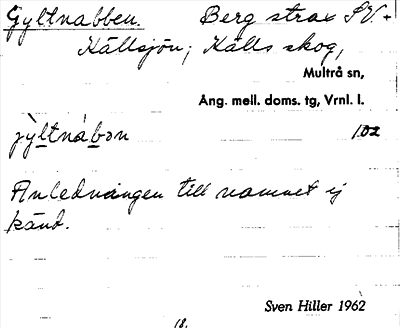 Gyltnabben. Berg strax SV.
Källsjön; Källs skog,
Multrå sn,
Ång. mell. doms. tg, Vrnl. l.
jỳltnábən 102
Anledningen till namnet ej
känd.
Sven Hiller 1962
18.